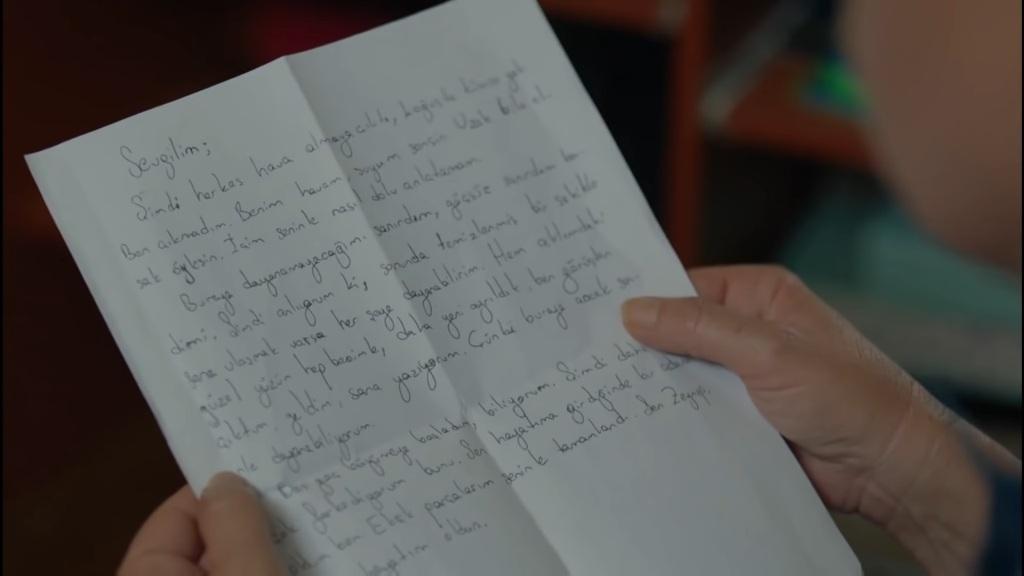 Sevgilim;
Şimdi herkes hava almaya çıktı, koğuşta kimse yok
Ben çıkmadım. Benim havam suyum sensin Uzak bile ol
sak öylesin. İçim seninle nasıl dolu anlatamam.
Buraya dayanamayacağım sanırdım, görüşte sanırdım ken
dimi, Şimdi anlıyorum ki, sonunda temizlenmiş bir şekilde
sana ulaşmak varsa her şeye dayanabilirim. Hem aklımdaki
güzel yüzün hep benimle, daha yeni ayrıldık, ben görüşten
çıktım, geldim, sana yazıyorum. Çünkü buraya ancak sen
inle dayanabiliyorum.
Ben yeni başladım, biliyorum. Şimdi daha
farkediyorum bunu. Sen hayatıma girdiğinde bir
ben Eksik parçalarım seninle tamamlandı.. Sen Zeynep,
hayatım oldun.